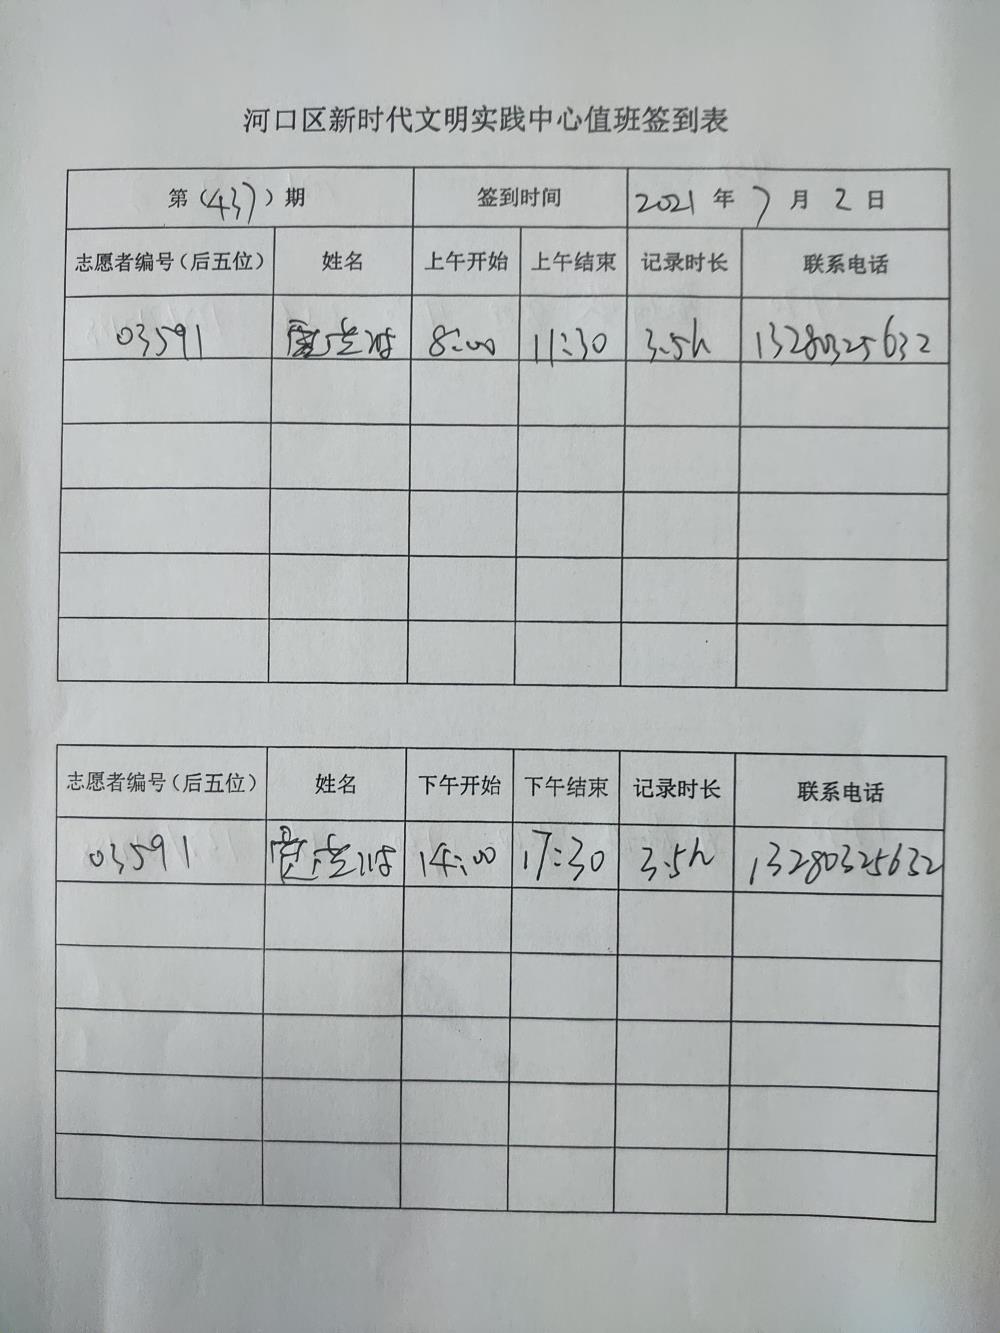 河口区新时代文明实践中心值班签到表
第（437）期 签到时间 2021 年 7 月 2 日
志愿者编号（后五位） 姓名 上午开始 上午结束 记录时长 联系电话
03591 8:00 11:30 3.5h 13280325632
志愿者编号（后五位） 姓名 下午开始 下午结束 记录时长 联系电话
03591 14:00 17:30 3.5h 13280325632